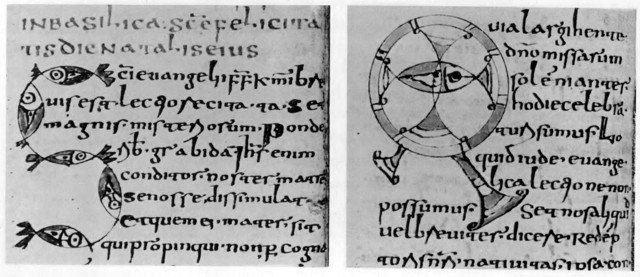 INBASILICA·SCE FELICITA
TIS DIE NATALIS EIUS
Sci evangelii frr kmi bre
uis est lectio recitata Set
magnis misteriorum ponde
rib· grabida ihs enim
conditor noster matre
se nosse dissimulat
et quem ei mater sit
qui propinqui non p cogno
Quia largihente
dno missarum
hodie celebra
turi sumus lo
qui diu de evange
lica lectione non
possumus Set nos aliqui
vel breviter dicere Redep
toris nri nativitas ipsa con